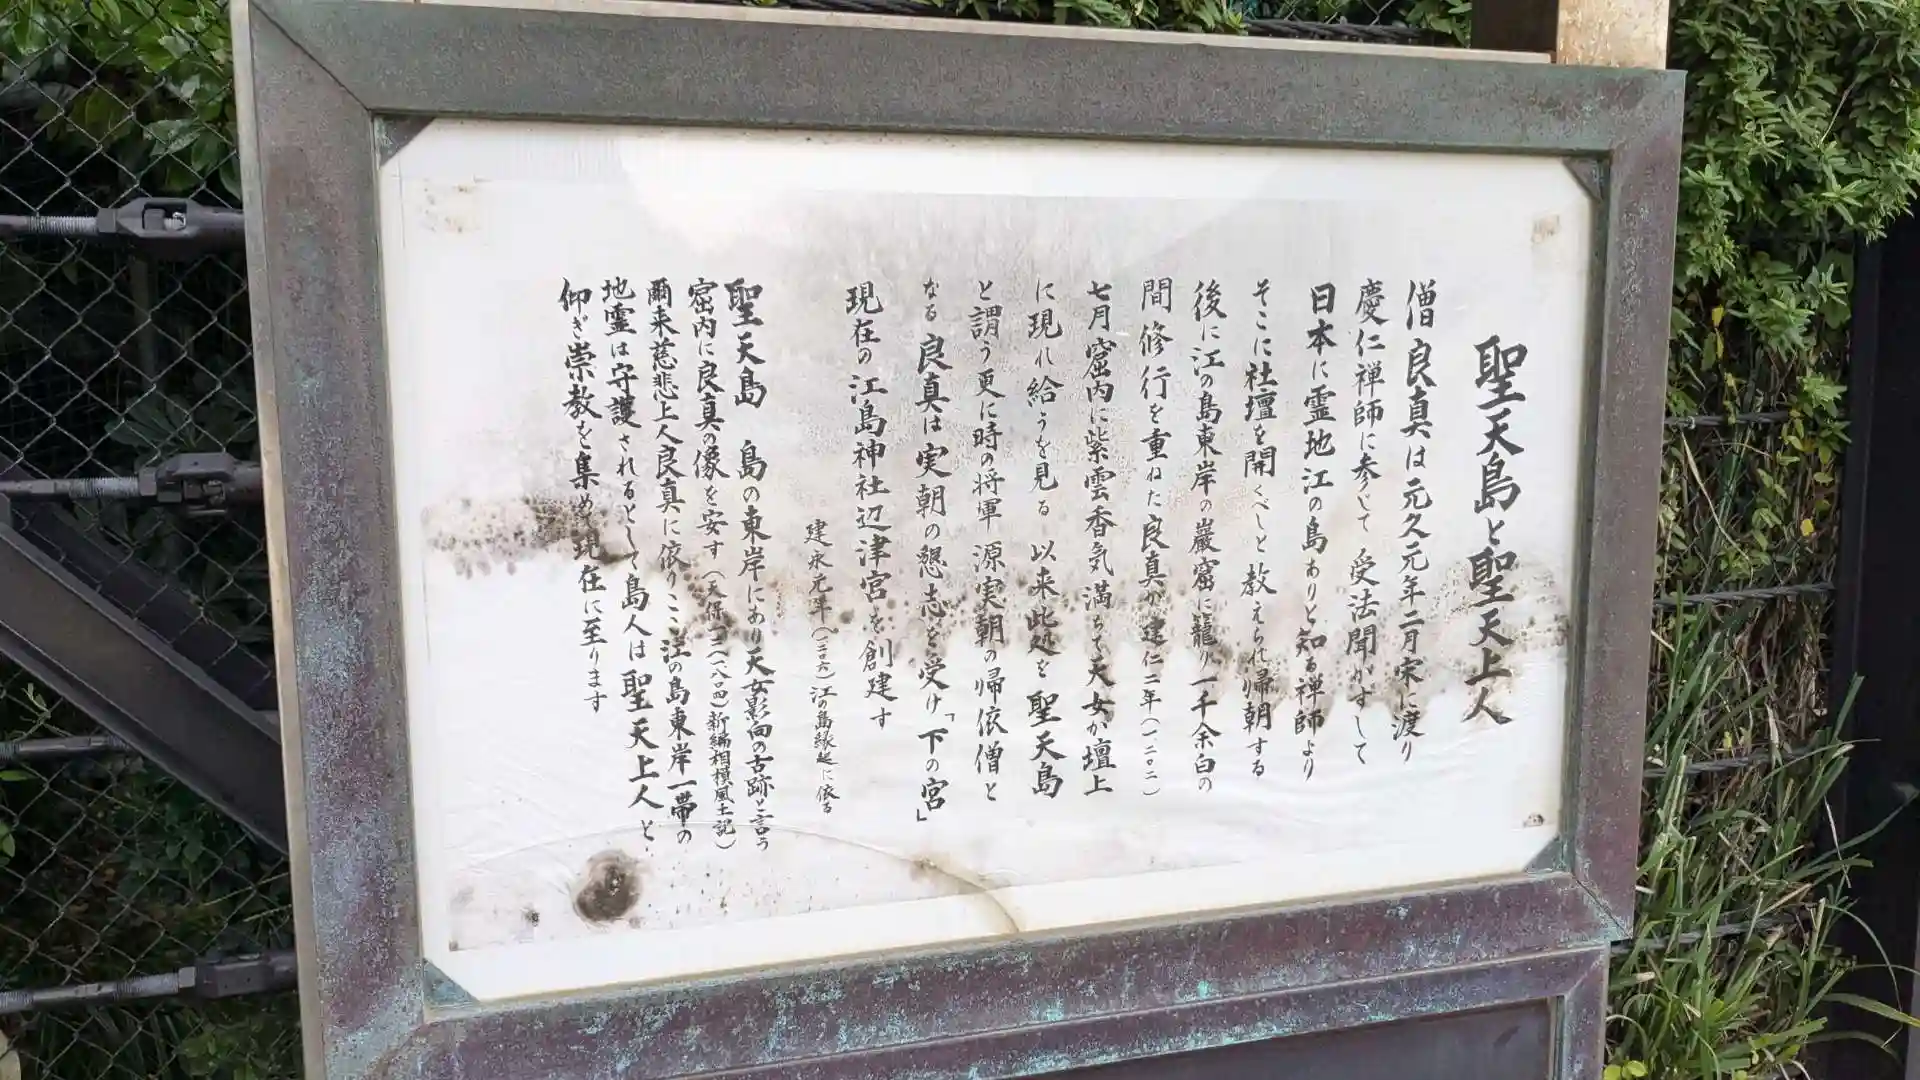 聖天島と聖天上人
僧良真は元久元年二月宋に渡り
慶仁禅師に参じて受法聞かずして
日本に霊地江の島ありと知る禅師より
そこに社壇を開くべしと教えられ帰朝する
後に江の島東岸の巌窟に籠り一千余白の
間修行を重ねた良真が建仁二年(一二〇二)
七月窟内に紫雲香気満ちて天女が壇上
に現れ給うを見る 以来此処を聖天島
と謂う更に時の将軍 源実朝の帰依僧と
なる良真は実朝の懇志を受け「下の宮」
現在の江島神社辺津宮を創建す
建永元年(一二〇六)江の島縁起に依る
聖天島 島の東岸にあり天女影向の古跡と言う
窟内に良真の像を安す(天保 新編相模風土記)
爾来慈悲上人良真に依りここ江の島東岸一帯の
地霊は守護されるとして島人は聖天上人と
仰ぎ崇教を集め現在に至ります